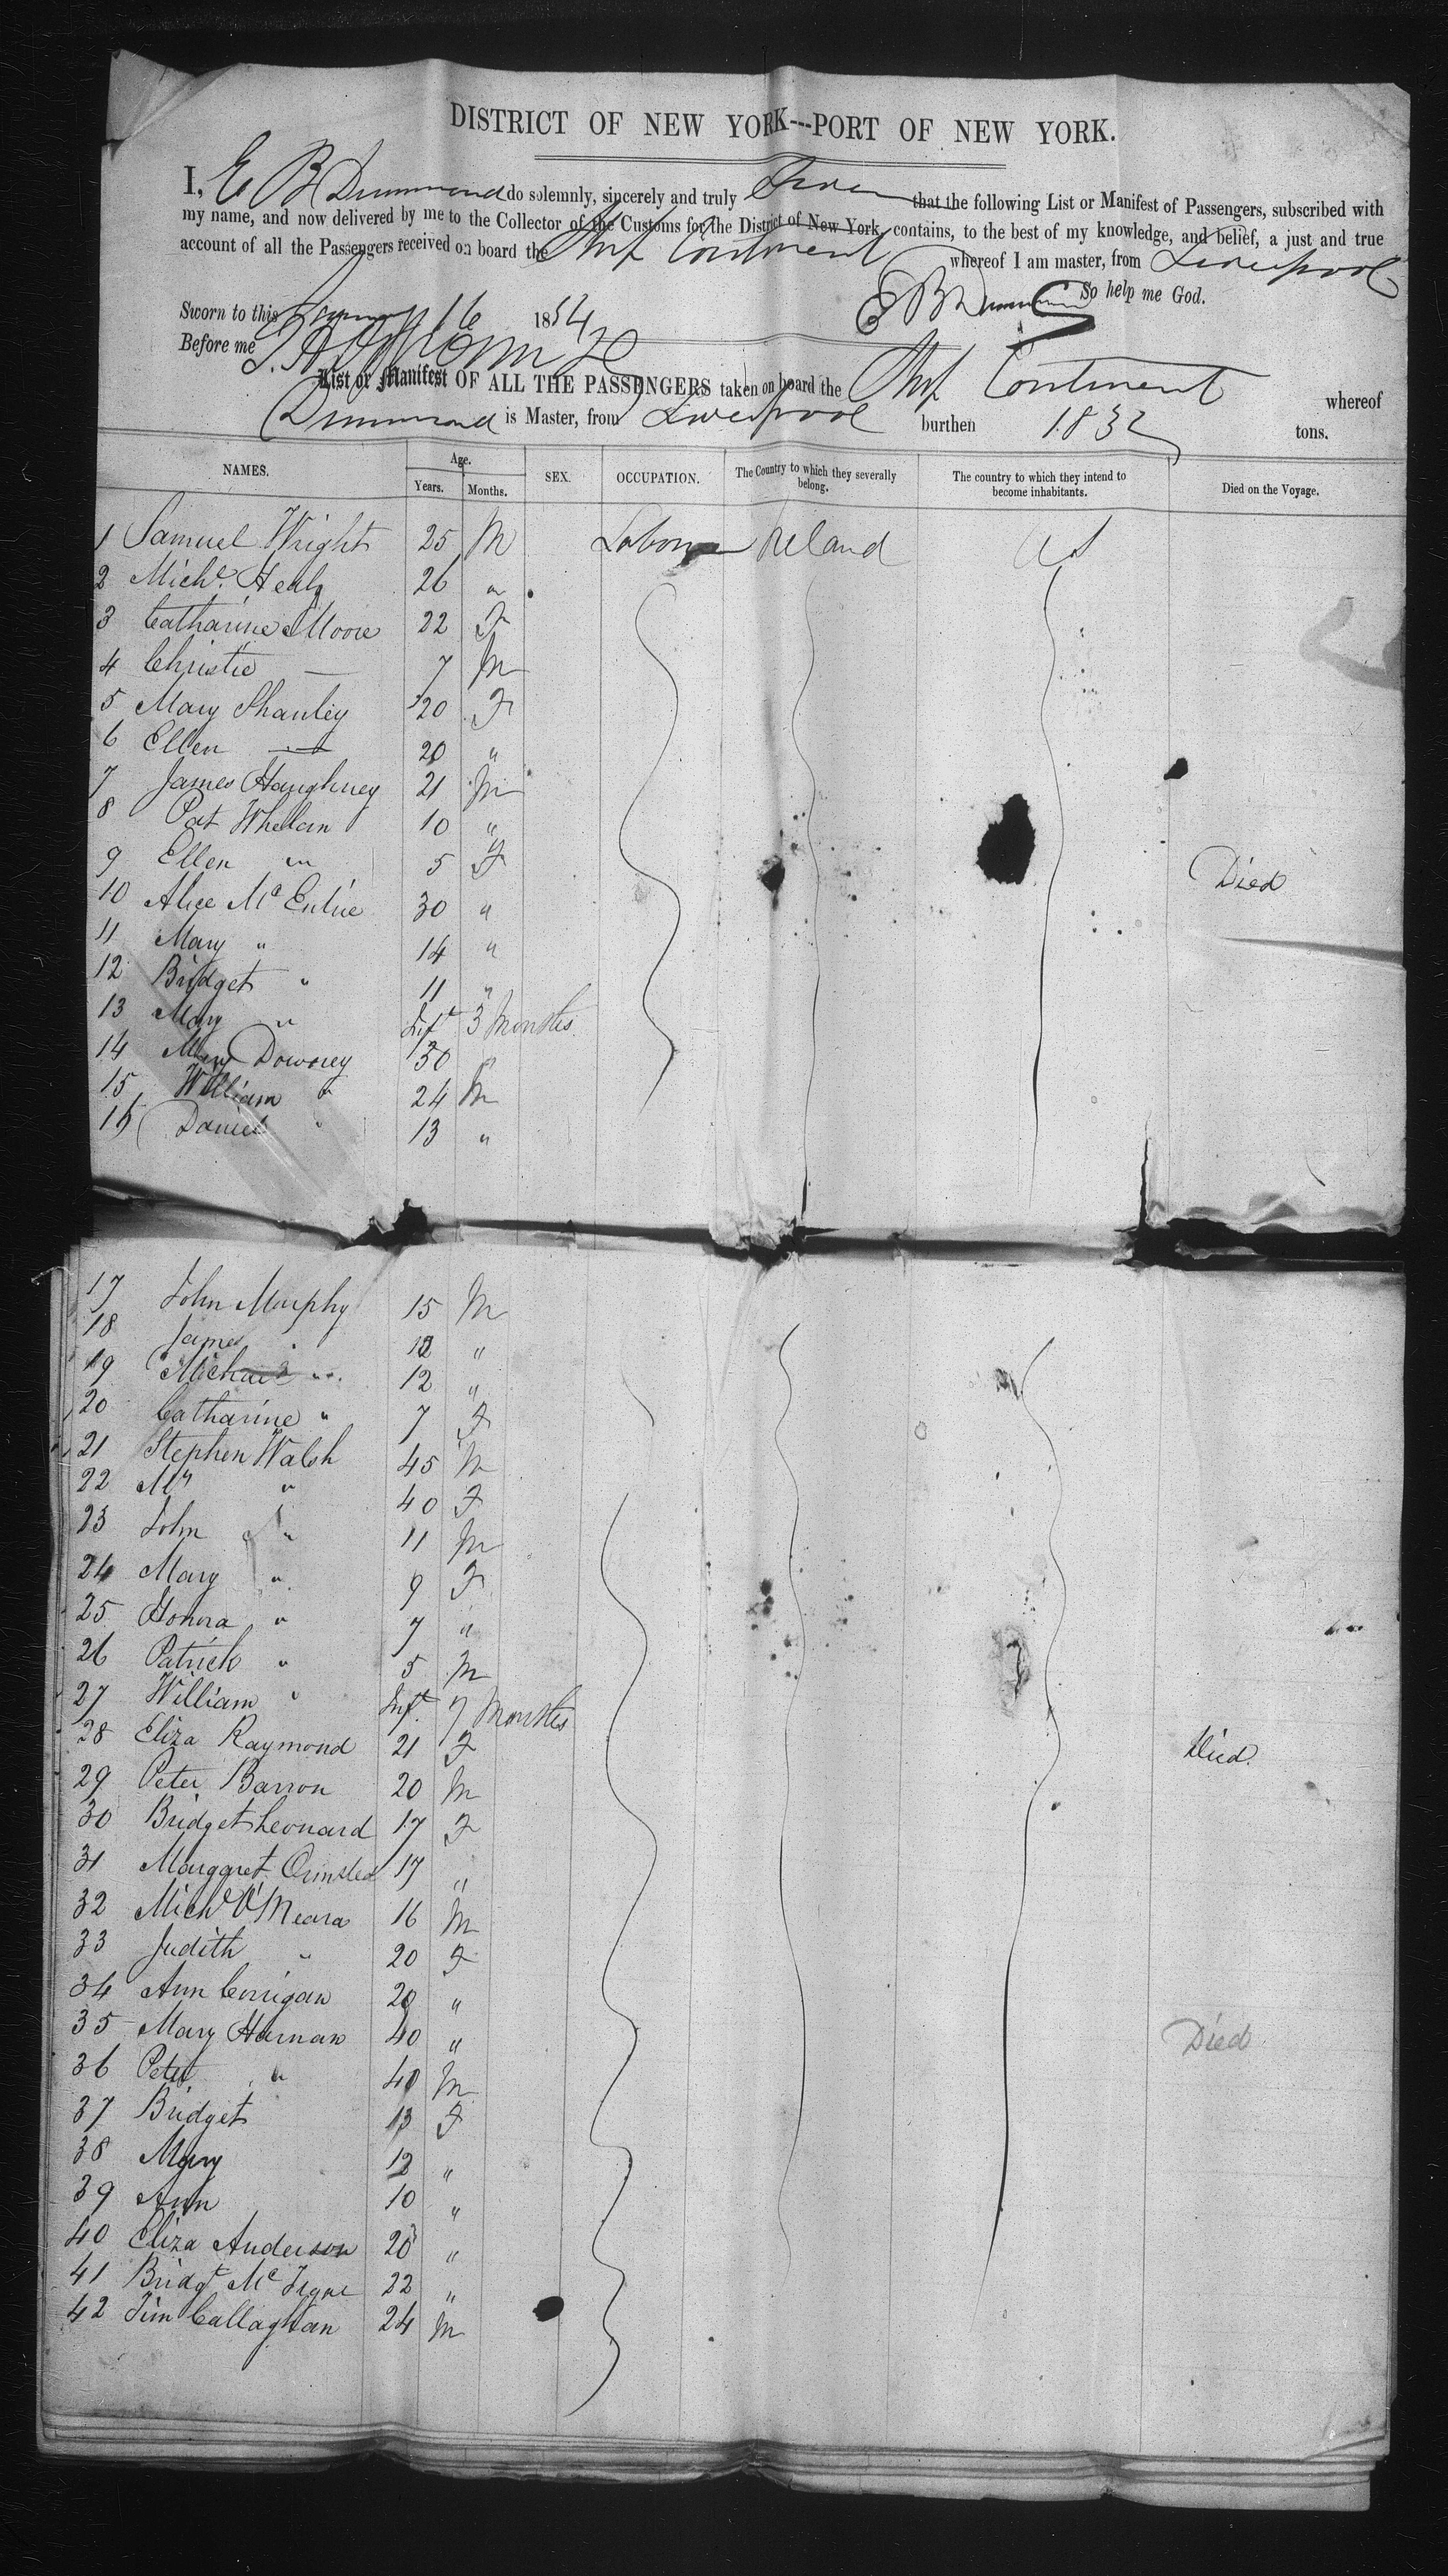 DISTRICT OF NEW YORK---PORT OF NEW YORK.
I, E B Drummond do solemnly, sincerely and truly Swear that the following List or Manifest of Passengers, subscribed with
my name, and now delivered by me to the Collector of the Customs for the District of New York, contains, to the best of my knowledge, and belief, a just and true
account of all the Passengers received on board the Ship Continent whereof I am master, from Liverpool
So help me God.
E B Drummond
Sworn to this January 16 1854
Before me
List or Manifest OF ALL THE PASSENGERS taken on board the Ship Continent whereof
Drummond is Master, from Liverpool burthen 1832 tons.
NAMES. Age. Years. Months. SEX. OCCUPATION. The Country to which they severally belong. The country to which they intend to become inhabitants. Died on the Voyage.
1 Samuel Wright 25 M Laborer Ireland US
2 Michl. Healy 26 "
3 Catharine Moore 22 F
4 Christie — 7 M
5 Mary Shanley 20 F
6 Ellen — 20 "
7 James Haughney 21 M
8 Pat Whelan 10 "
9 Ellen " 5 F Died
10 Alice Mc Entire 30 "
11 Mary " 14 "
12 Bridget " 11 "
13 Mary " Inft 3 Months
14 Mary Downey 50 "
15 William " 24 M
16 Daniel " 13 "
17 John Murphy 15 M
18 James " 12 "
19 Michael " 12 "
20 Catharine " 7 F
21 Stephen Walsh 45 M
22 Mrs " 40 F
23 John " 11 M
24 Mary " 9 F
25 Honora " 7 "
26 Patrick " 5 M
27 William " Inft. 7 Months
28 Eliza Raymond 21 F Died.
29 Peter Barron 20 M
30 Bridget Leonard 17 F
31 Margaret Ormsted 17 "
32 Michl O'Meara 16 M
33 Judith " 20 F
34 Ann Corrigan 20 "
35 Mary Harnan 40 " Died
36 Peter " 40 M
37 Bridget 13 F
38 Mary 12 "
39 Ann 10 "
40 Eliza Anderson 20 "
41 Bridgt Mc Tigue 22 "
42 Tim Callaghan 24 M